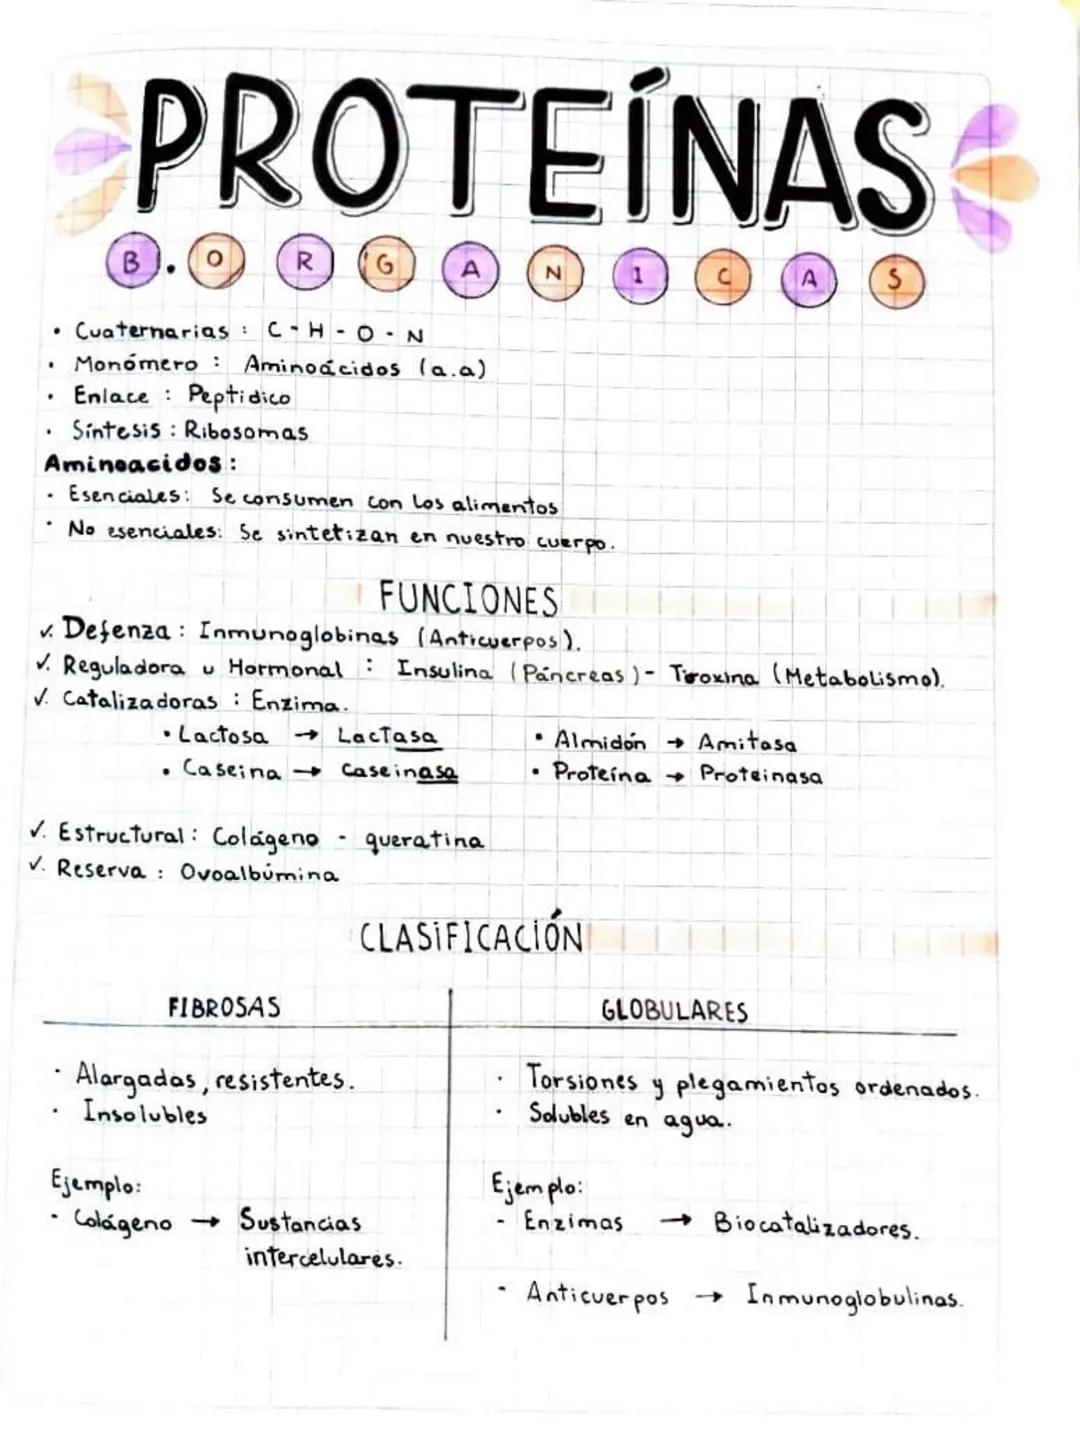 PROTEÍNAS
B. ORGANICAS
• Cuaternarias : C - H - O - N
• Monómero : Aminoácidos (a.a)
• Enlace : Peptidico
• Síntesis : Ribosomas
Aminoacidos :
• Esenciales: Se consumen con los alimentos
• No esenciales: Se sintetizan en nuestro cuerpo.
FUNCIONES
✓. Defenza : Inmunoglobinas (Anticuerpos).
✓. Reguladora u Hormonal : Insulina (Páncreas) - Tiroxina (Metabolismo).
✓. Catalizadoras : Enzima.
• Lactosa → Lactasa • Almidón → Amitasa
• Caseina → Caseinasa • Proteína → Proteinasa
✓. Estructural : Colágeno - queratina
✓. Reserva : Ovoalbúmina
CLASIFICACIÓN
FIBROSAS GLOBULARES
• Alargadas, resistentes. • Torsiones y plegamientos ordenados.
• Insolubles • Solubles en agua.
Ejemplo: Ejemplo:
- Colágeno → Sustancias - Enzimas → Biocatalizadores.
intercelulares.
- Anticuerpos → Inmunoglobulinas.